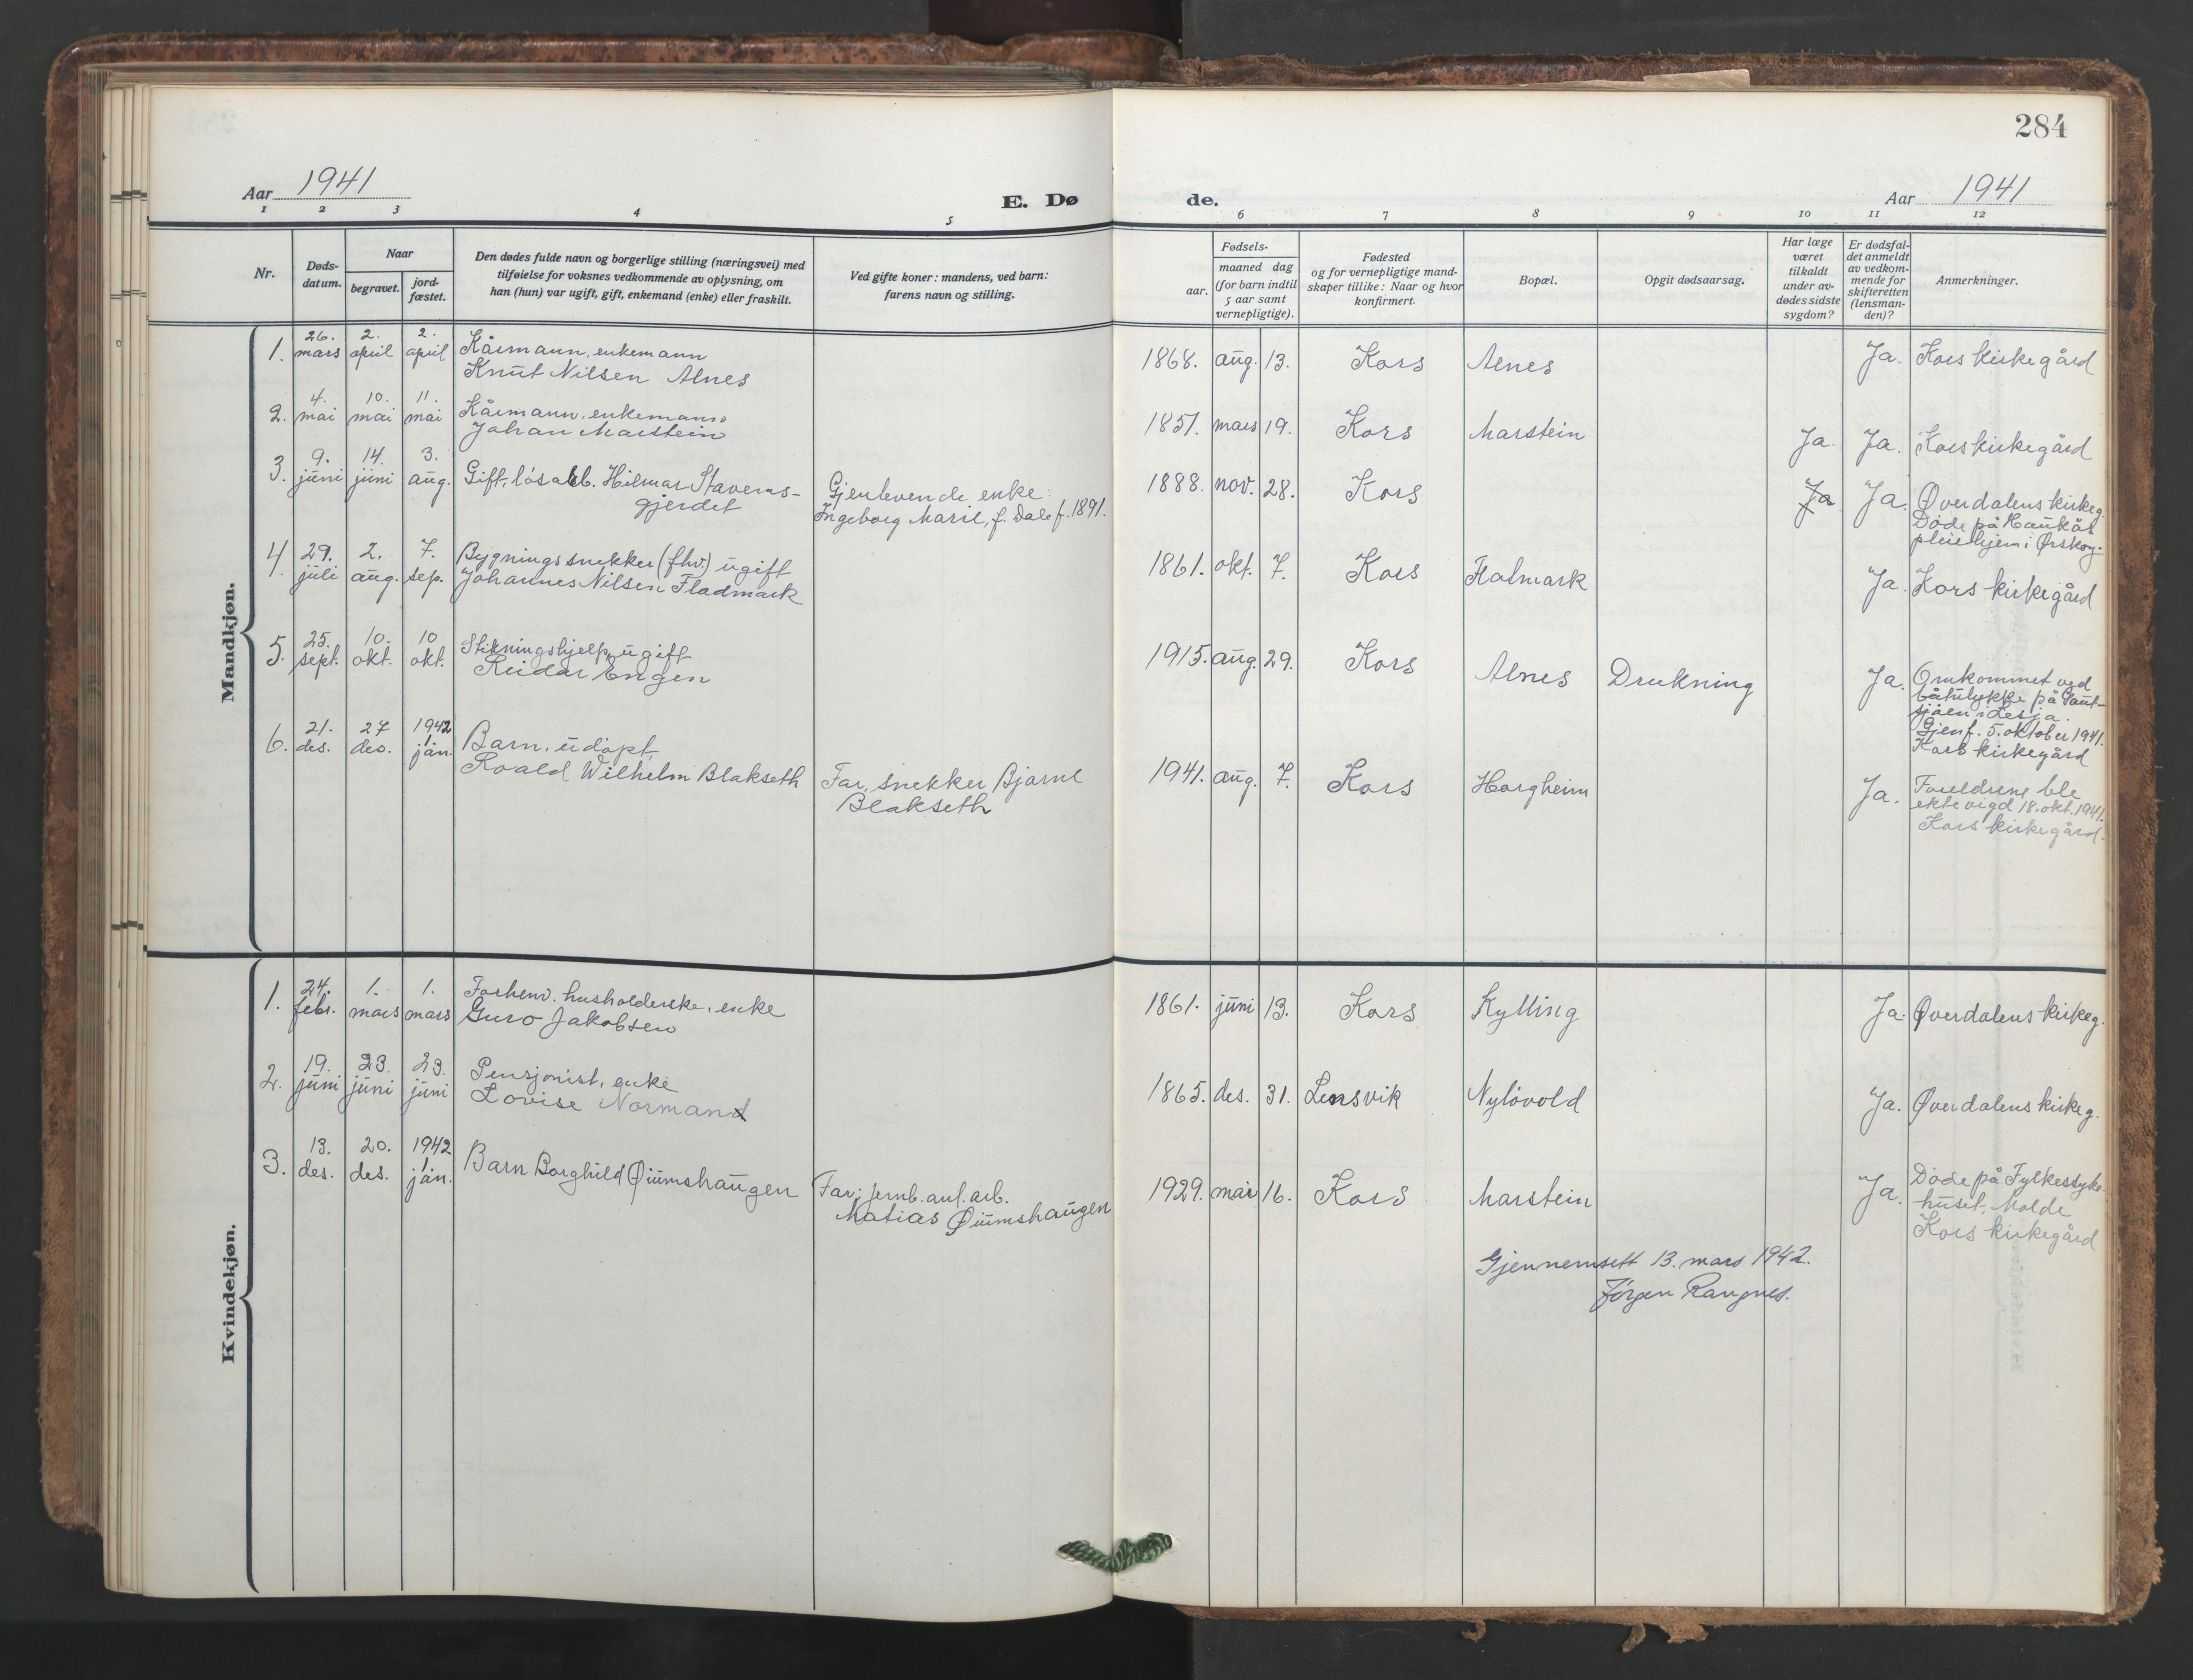 284
Aar 1941
E. Dø
de.
Aar 1941
1 2 3 4 5 6 7 8 9 10 11 12
Nr.
Døds-
datum.
Naar
begravet.
jord-
fæstet.
Den dødes fulde navn og borgerlige stilling (næringsvei) med
tilføielse for voksnes vedkommende av oplysning, om
han (hun) var ugift, gift, enkemand (enke) eller fraskilt.
Ved gifte koner: mandens, ved barn:
farens navn og stilling.
Fødsels-
aar.
maaned dag
(for barn indtil
5 aar samt
vernepligtige).
Fødested
og for vernepligtige mand-
skaper tillike: Naar og hvor
konfirmert.
Bopæl.
Opgit dødsaarsag.
Har læge
været
tilkaldt
under av-
dødes sidste
sygdom?
Er dødsfal-
det anmeldt
av vedkom-
mende for
skifteretten
(lensman-
den)?
Anmerkninger.
Mandkjøn.
1. 26. mars 2. april 2. april Kårmann, enkemann
Knut Nilsen Alnes
1868. aug. 13. Kors Alnes Ja. Kors kirkegård
2. 4. mai 10. mai 11. mai Kårmann, enkemann
Johan Marstein
1851. mars 19. Kors Marstein Ja. Ja. Kors kirkegård
3. 9. juni 14. juni 3. aug. Gift, løsarb. Hilmar Stavems-
gjerdet
Gjenlevende enke:
Ingeborg Marie, f. Dale f. 1891.
1888. nov. 28. Kors Ja Ja. Øverdalens kirkeg.
Døde på Haukås
pleiehjem i Ørskog.
4. 29. juli 2. aug. 7. sep. Bygningssnekker (fhv.) ugift
Johannes Nilsen Fladmark
1861. okt. 7. Kors Flatmark Ja. Kors kirkegård
5. 25. sept. 10. okt. 10 okt. Stikningshjelp, ugift
Reidar Engen
1915. aug. 29. Kors Alnes Drukning Ja. Omkommet ved
båtulykke på
sjøen i Lesja.
Gjenf. 5. oktober 1941.
Kors kirkegård
6. 21. des. 27 des. 1942 1. jan. Barn, udøpt,
Roald Wilhelm Blakseth
Far, snekker Bjarne
Blakseth
1941. aug. 7. Kors Horgheim Ja. Foreldrene ble
ektevigd 18. okt. 1941.
Kors kirkegård.
Kvindekjøn.
1. 24. febr. 1. mars 1. mars Forhenv. husholderske, enke
Guro Jakobsen
1861. juni 13. Kors Kylling Ja. Øverdalens kirkeg.
2. 19. juni 23. juni 23. juni Pensjonist, enke
Lovise Normann
1865. des. 31. Lensvik Nyløvold Ja. Øverdalens kirkeg.
3. 13. des. 20. des. 1942 1. jan. Barn Borghild Øiumshaugen
Far: jernb. anl. arb.
Matias Øiumshaugen
1929. mai 16. Kors Marstein Ja. Døde på Fylkessyke-
huset, Molde
Kors kirkegård
Gjennemsett 13. mars 1942.
Jørgen Rangnes.